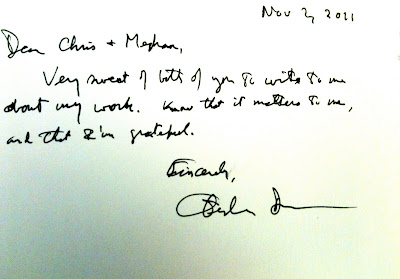 Nov 2, 2011
Dear Chris + Meghan,
Very sweet of both of you to write to me
about my work. Know that it matters to me,
and that I'm grateful.
Sincerely,